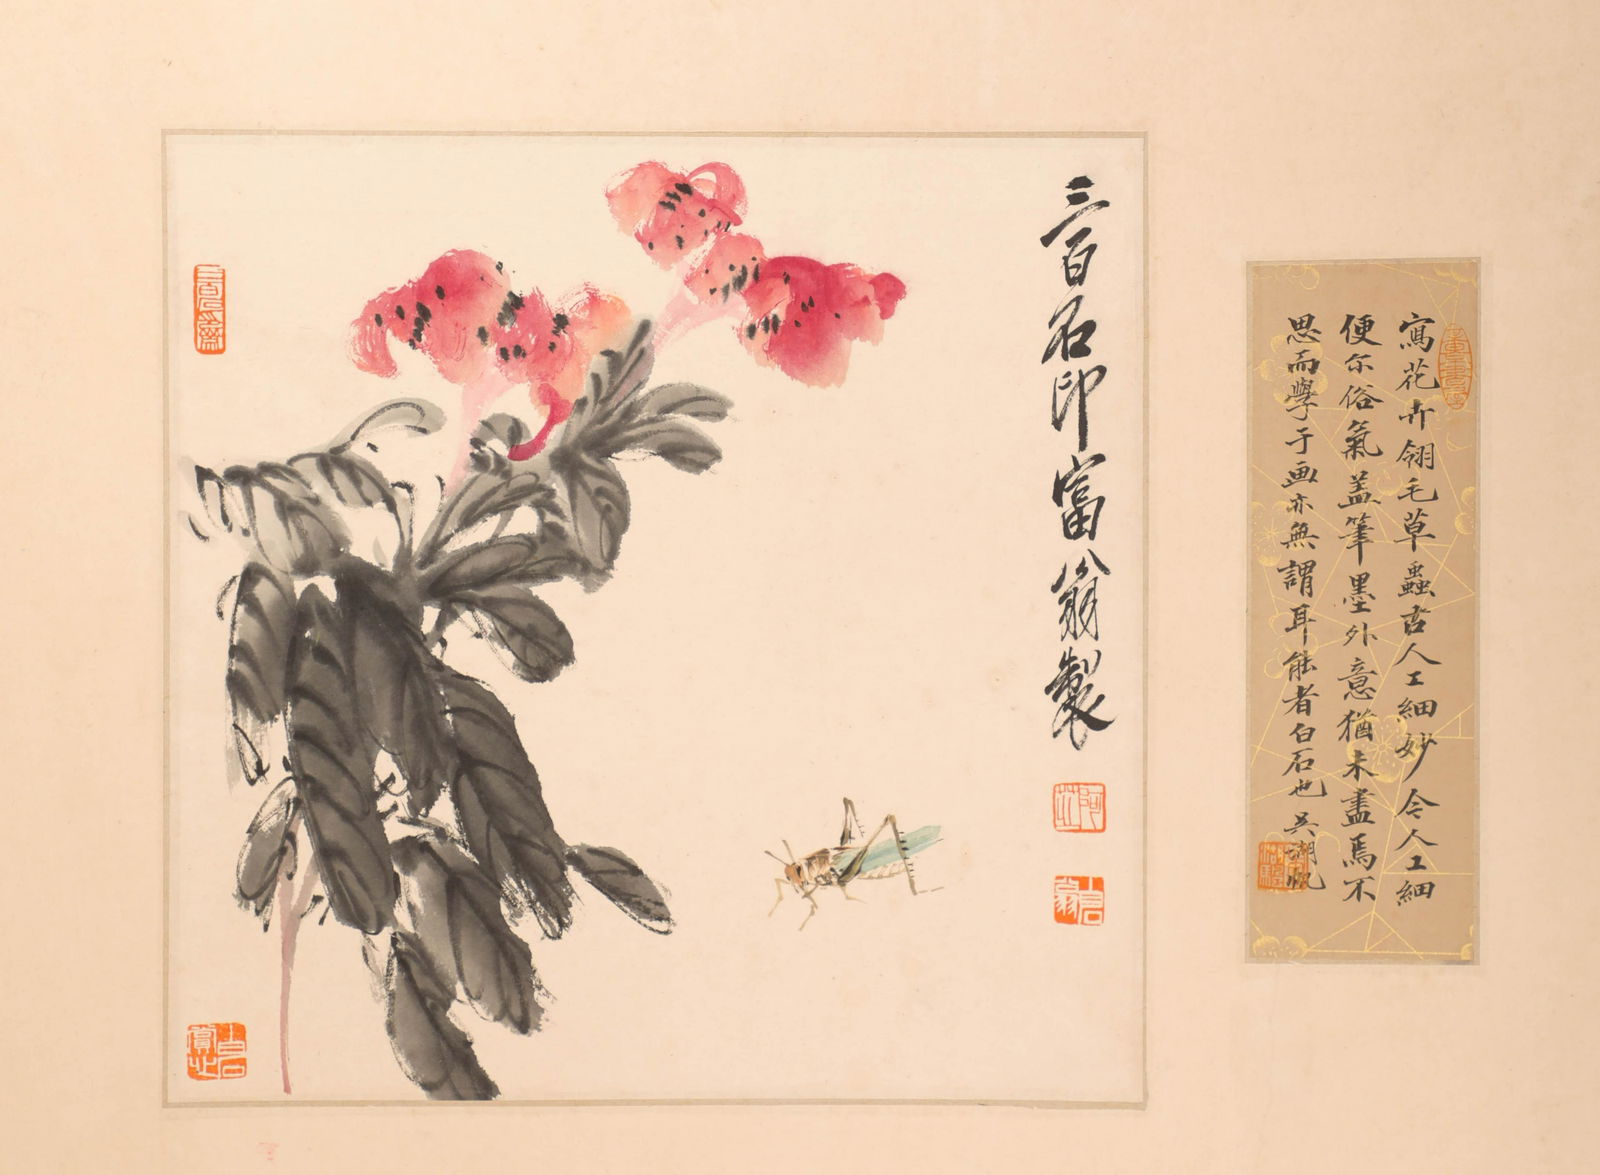 三百石印富翁製
阿芷
白石翁
寫花卉翎毛草蟲古人工細妙今人工細
便尔俗氣蓋筆墨外意猶未盡焉不
思而學于画亦無謂耳能者白石也吳湖帆